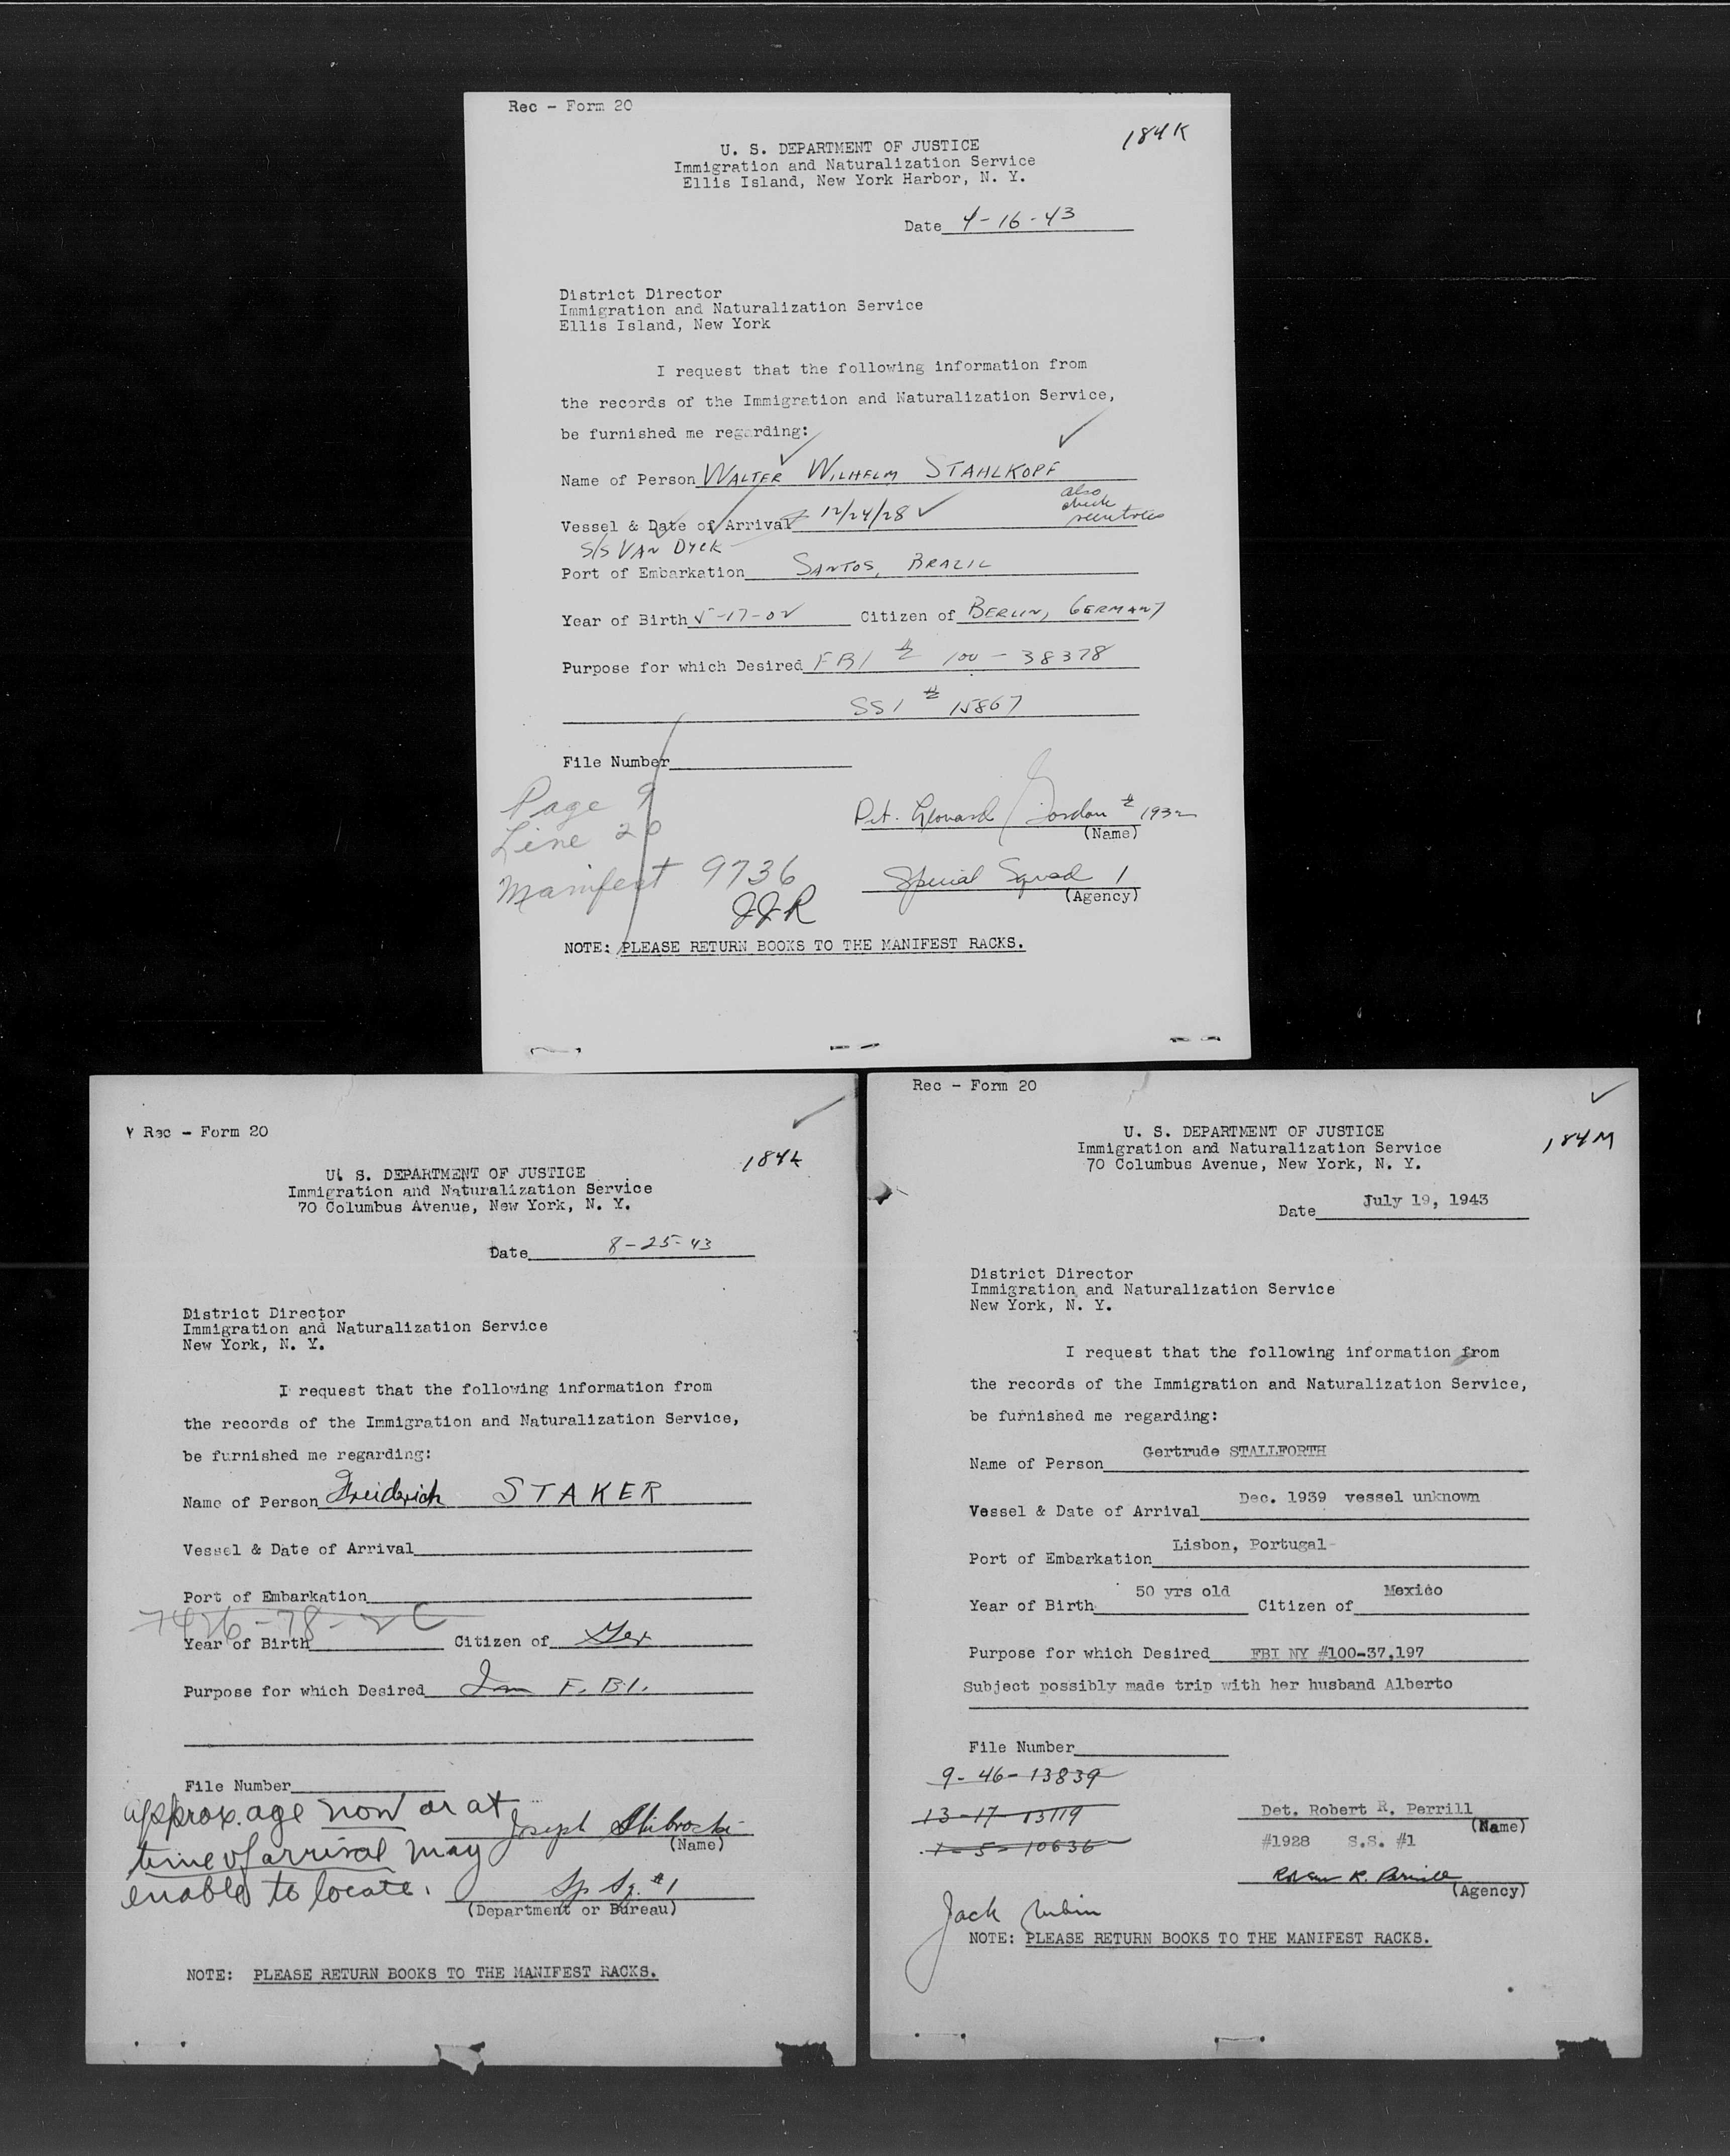 Rec - Form 20
184K
U. S. DEPARTMENT OF JUSTICE
Immigration and Naturalization Service
Ellis Island, New York Harbor, N. Y.
Date 4-16-43
District Director
Immigration and Naturalization Service
Ellis Island, New York
I request that the following information from
the records of the Immigration and Naturalization Service,
be furnished me regarding:
Name of Person WALTER WILHELM STAHLKOPF
also
check
Vessel & Date of Arrival 12/24/28
S/S VAN DYCK
Port of Embarkation SANTOS, BRAZIL
Year of Birth 5-17-02 Citizen of BERLIN, GERMANY
Purpose for which Desired FBI # 100-38378
SSI # 15867
File Number
Page 9
Line 20
Manifest 9736
JJR
Det. Leonard Jordan # 1932
(Name)
Special Squad 1
(Agency)
NOTE: PLEASE RETURN BOOKS TO THE MANIFEST RACKS.
Rec - Form 20
184L
U. S. DEPARTMENT OF JUSTICE
Immigration and Naturalization Service
70 Columbus Avenue, New York, N. Y.
Date 8-25-43
District Director
Immigration and Naturalization Service
New York, N. Y.
I request that the following information from
the records of the Immigration and Naturalization Service,
be furnished me regarding:
Name of Person Freiderich STAKER
Vessel & Date of Arrival
Port of Embarkation
Year of Birth Citizen of Ger
Purpose for which Desired F.B.I.
File Number
approx. age now or at
time of arrival may
enable to locate.
Joseph
(Name)
Sp Sq. #1
(Department or Bureau)
NOTE: PLEASE RETURN BOOKS TO THE MANIFEST RACKS.
Rec - Form 20
184M
U. S. DEPARTMENT OF JUSTICE
Immigration and Naturalization Service
70 Columbus Avenue, New York, N. Y.
Date July 19, 1943
District Director
Immigration and Naturalization Service
New York, N. Y.
I request that the following information from
the records of the Immigration and Naturalization Service,
be furnished me regarding:
Name of Person Gertrude STALLFORTH
Vessel & Date of Arrival Dec. 1939 vessel unknown
Port of Embarkation Lisbon, Portugal-
Year of Birth 50 yrs old Citizen of Mexico
Purpose for which Desired FBI NY #100-37,197
Subject possibly made trip with her husband Alberto
File Number
9-46-13839
13-17-13119
1-5-10636
Det. Robert R. Perrill
(Name)
#1928 S.S. #1
Robert R. Perrill
(Agency)
Jack Rubin
NOTE: PLEASE RETURN BOOKS TO THE MANIFEST RACKS.